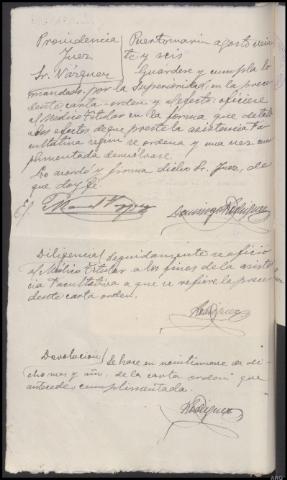 Providencia
Juez
Sr. Vazquez
Puertomarin agosto vein
te y seis
Guardese y cumpla lo
mandado por la Superioridad en la prece
dente carta-orden y al efecto oficiese
al Medico titular en la forma que
los efectos de que preste la asistencia fa
cultativa segun se ordena y una vez cum
plimentada devuelvase.
Lo acordó y firma dicho Sr. Juez, de
que doy fé
Diligencia/ Seguidamente se oficio
al Médico titular a los fines de la asisten
cia facultativa a que se refiere la prece
dente carta orden.
Rodriguez
Devolucion/ Se hace en veintinueve de di
cho mes y año de la carta orden que
antecede cumplimentada.
Rodriguez